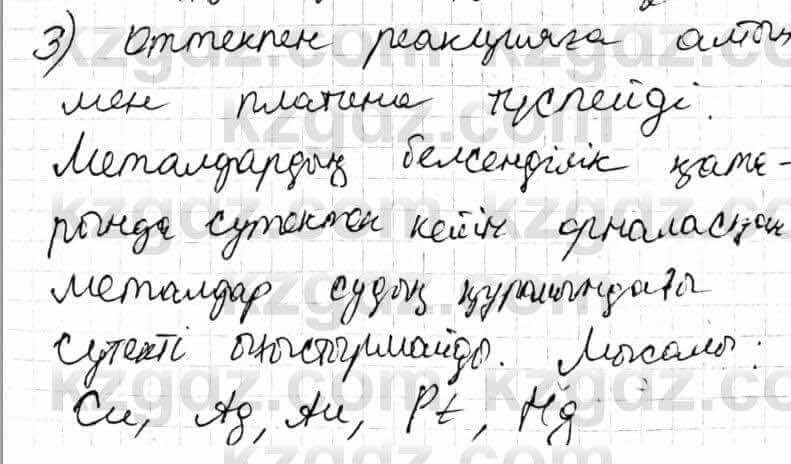 3) Оттекпен реакцияға алтын
мен платина түспейді.
Металдардың белсенділік қата-
рында сутектен кейін орналасқан
металдар судың құрамындағы
сутекті ығыстырмайды. Мысалы:
Cu, Ag, Au, Pt, Hg
kzgdz.com